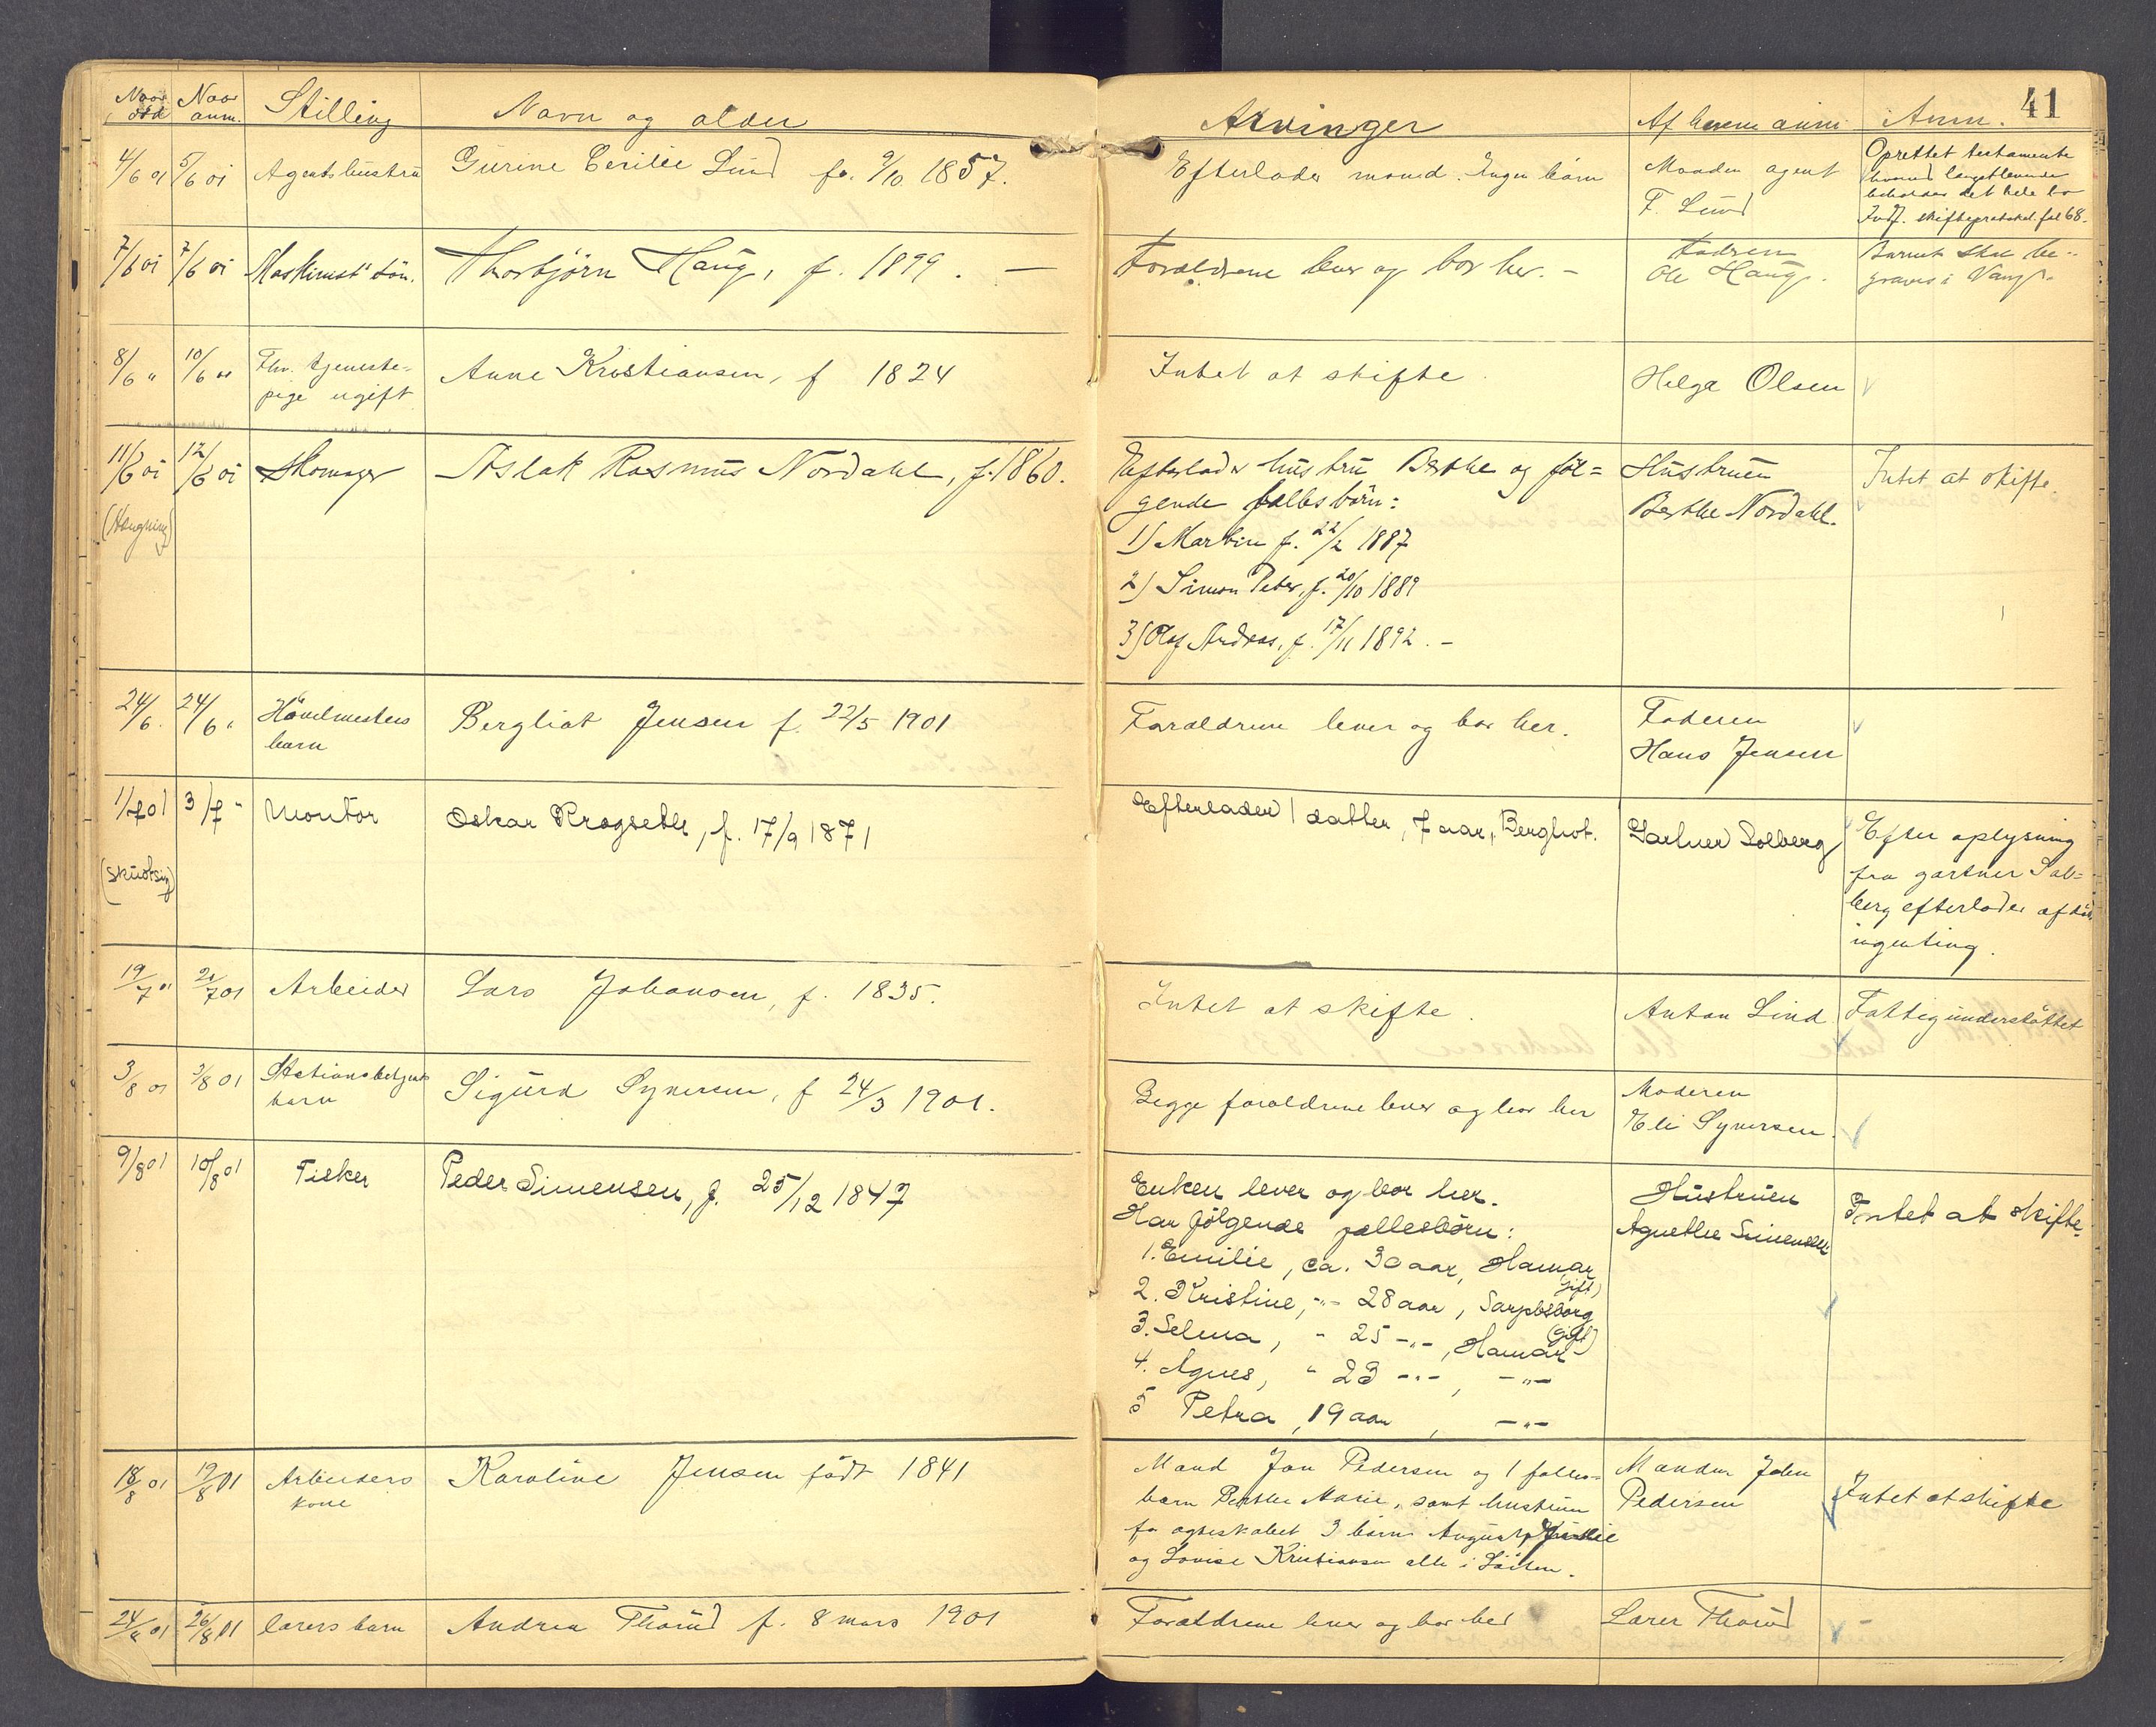 Naar død Naar anm. Stilling Navn og alder Arvinger Af hvem anm. Anm. 41
4/6 01 5/6 01 Agents hustru Gurine Cecilie Lund fø. 9/10 1857. Efterlader mand. Ingen børn Manden agent Oprettet testamente
F. Lund hvorved længstlevende
beholder det hele bo
Indf. skifteprotokol fol 68.
7/6 01 7/6 01 Maskinist sön. Thorbjørn Haug, f. 1899. — Forældrene lever og bor her. - Fadren Barnet skal be-
Ole Haug. graves i Vang.
8/6 " 10/6 " Fhv. tjeneste- Anne Kristiansen, f 1824 Intet at skifte. Helga Olsen
pige ugift
11/6 01 12/6 01 Skomager Aslak Rasmus Nordahl, f. 1860. Efterlader hustru Berthe og föl= Hustruen Intet at skifte.
(Hængning) gende fælles börn: Berthe Nordahl.
1) Martin f. 22/2 1887
2) Simon Peter, f. 20/10 1889
3) Olaf Andreas, f. 17/11 1892. -
24/6. 24/6 " Hövelmesters Bergliot Jensen f. 22/5 1901 Forældrene lever og bor her. Faderen
barn Hans Jensen
1/7 01 3/7 " Montör Oskar Krogseth, f. 17/9 1871 Efterlader 1 datter, 7 aar, Bergliot. Gartner Solberg Efter oplysning
(skudt sig) fra gartner Sol=
berg efterlader afdøde
ingenting.
19/7 01 20/7 01 Arbeider Lars Johansen, f. 1835. Intet at skifte. Anton Lind Fattigunderstöttet
3/8 01 3/8 01 Stationsbetjents Sigurd Syversen, f 24/3 1901. Begge forældrene lever og bor her Moderen
barn Eli Syversen.
9/8 01 10/8 01 Fisker Peder Simensen, f. 25/12 1847 Enken lever og bor her. Hustruen Intet at skifte.
Har fölgende fællesbörn: Agnethe Simensen
1. Emilie, ca. 30 aar, Hamar
(gift)
2. Kristine, -"- 28 aar, Sarpsborg
(gift)
3. Selma, " 25 -"-, Hamar
4. Agnes, " 23 -"-, -"-
5 Petra, 19 aar, -"-
18/8 01 19/8 01 Arbeiders Karoline Jensen födt 1841 Mand Jon Pedersen og 1 fælles- Manden John Intet at skifte
kone barn Berthe Marie, samt hustruen Pedersen
før ægteskabet 3 börn August,
og Lovise Kristiansen alle i Löiten.
24/8 01 26/8 01 lærers barn Andrea Thorud f. 8 mars 1901 Forældrene lever og bor her Lærer Thorud